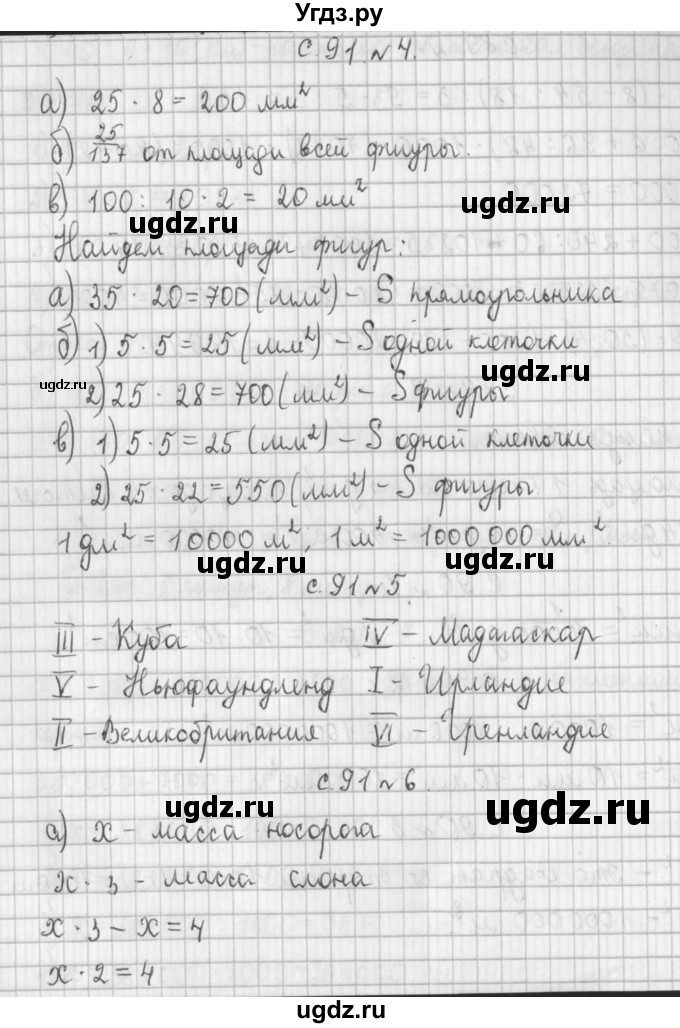 Угдз.ру
с. 91 № 4.
а) 25 · 8 = 200 мм²
б) 25/157 от площади всей фигуры.
в) 100 : 10 · 2 = 20 мм²
ugdz.ru ugdz.ru
Найдем площади фигур:
а) 35 · 20 = 700 (мм²) – S прямоугольника
б) 1) 5 · 5 = 25 (мм²) – S одной клеточки
ugdz.ru ugdz.ru
2) 25 · 28 = 700 (мм²) – S фигуры
в) 1) 5 · 5 = 25 (мм²) – S одной клеточки
2) 25 · 22 = 550 (мм²) – S фигуры
1 дм² = 10000 м², 1 м² = 1000 000 мм².
ugdz.ru ugdz.ru
с. 91 № 5.
III – Куба IV – Мадагаскар
V – Ньюфаундленд I – Ирландие
II – Великобритания VI – Гренландие
с. 91 № 6.
ugdz.ru ugdz.ru
а) x – масса носорога
x · 3 – масса слона
x · 3 – x = 4
x · 2 = 4
ugdz.ru